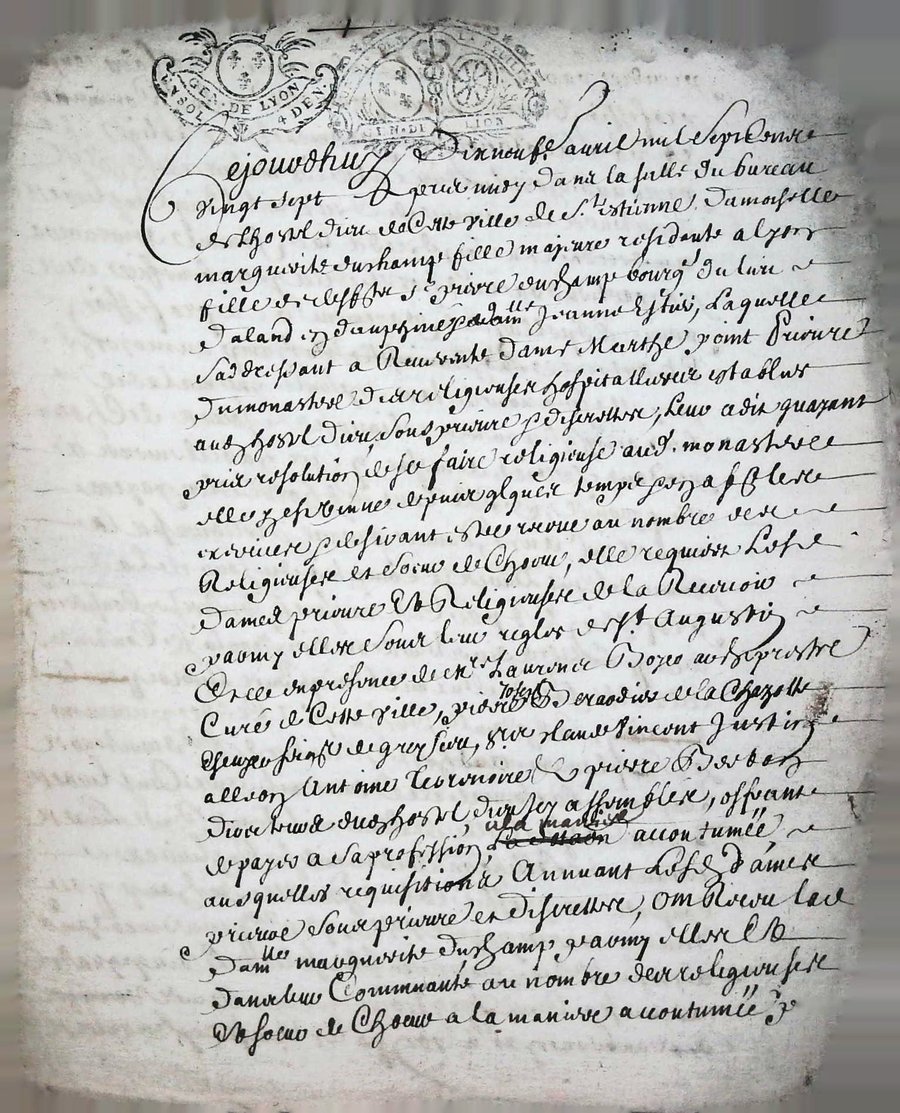 GEN. DE LYON
EN SOL 4 DEN
GEN. DE LION
Cejourdhuy Dixneuf avril mil sept cent
vingt sept apres midy dans la salle du bureau
de lhostel dieu de cette ville de St. estienne Damoiselle
marguerite duchamp fille majeure residante a lyon
fille de deffunt sr. pierre duchamp bourgs. du lieu
en dauphiné & dalle Jeanne Laquelle
saddressant a Reverente dame Marthe point Prieure
du monastere des religieuses hospitallieres establies
aud. hostel dieu, sous prieure & discrettes, leur a dit quayant
pris resolution de se faire religieuse aud. monastere
elle depuis qlques temps
exercices & desirant estre recue au nombre des
Religieuses et soeur de Choeur, elle requiert Lesd.
dames prieure Et Religieuses de la Recevoir
parmy elles sous leur regle de st. Augustin
Et ce en presence de me. Laurence prestre
Curé de Cette ville, pierre Joseph de la Chazotte
seigr de sr. claude vincent Justin
alleon Antoine & pierre
Directeurs dud. hostel dieu assemblés, offrante
de payer a sa profession, a la maniere accoutumée
ausquelles requisitions Annuant Lesd. dames
prieure sous prieure et discrettes, Ont Receu lad.
damlle marguerite duchamp parmy elles Et
dans leur Communauté au nombre des religieuses
Et soeur de Choeur a la maniere accoutumée &